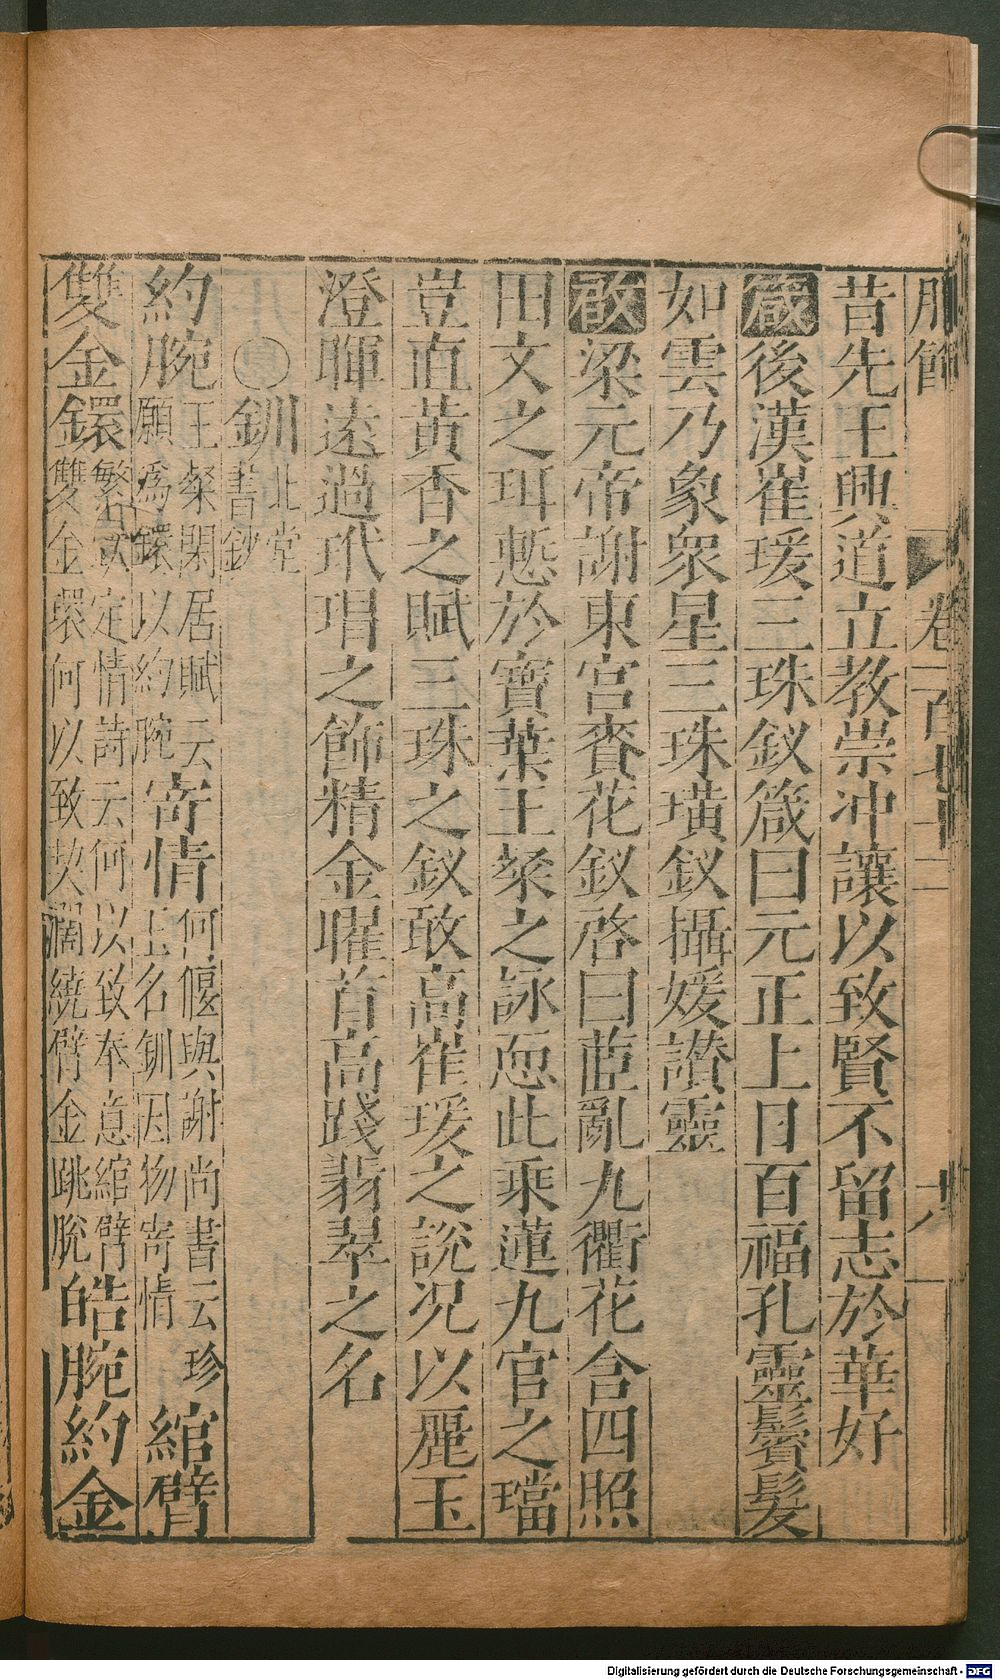 服飾 卷一百七十二 八
昔先王興道立教崇冲讓以致賢不留志於華好
箴後漢崔瑗三珠釵箴曰元正上日百福孔靈鬢髮
如雲乃象衆星三珠璜釵攝媛讃靈
啟梁元帝謝東宮賚花釵啓曰苣亂九衢花含四照
田文之珥慙於寳葉王粲之詠恧此乘蓮九官之璫
豈直黃香之賦三珠之釵敢高崔瑗之說況以麗玉
澄暉遠過玳瑁之飾精金曜首高踐翡翠之名
○釧北堂書鈔
約腕王粲閑居賦云願爲鐶以約腕寄情何偃與謝尚書云珍玉名釧因物寄情綰臂
雙金鐶繁欽定情詩云何以致奉意綰臂雙金環何以致契濶繞臂金跳脫皓腕約金
Digitalisierung gefördert durch die Deutsche Forschungsgemeinschaft - DFG